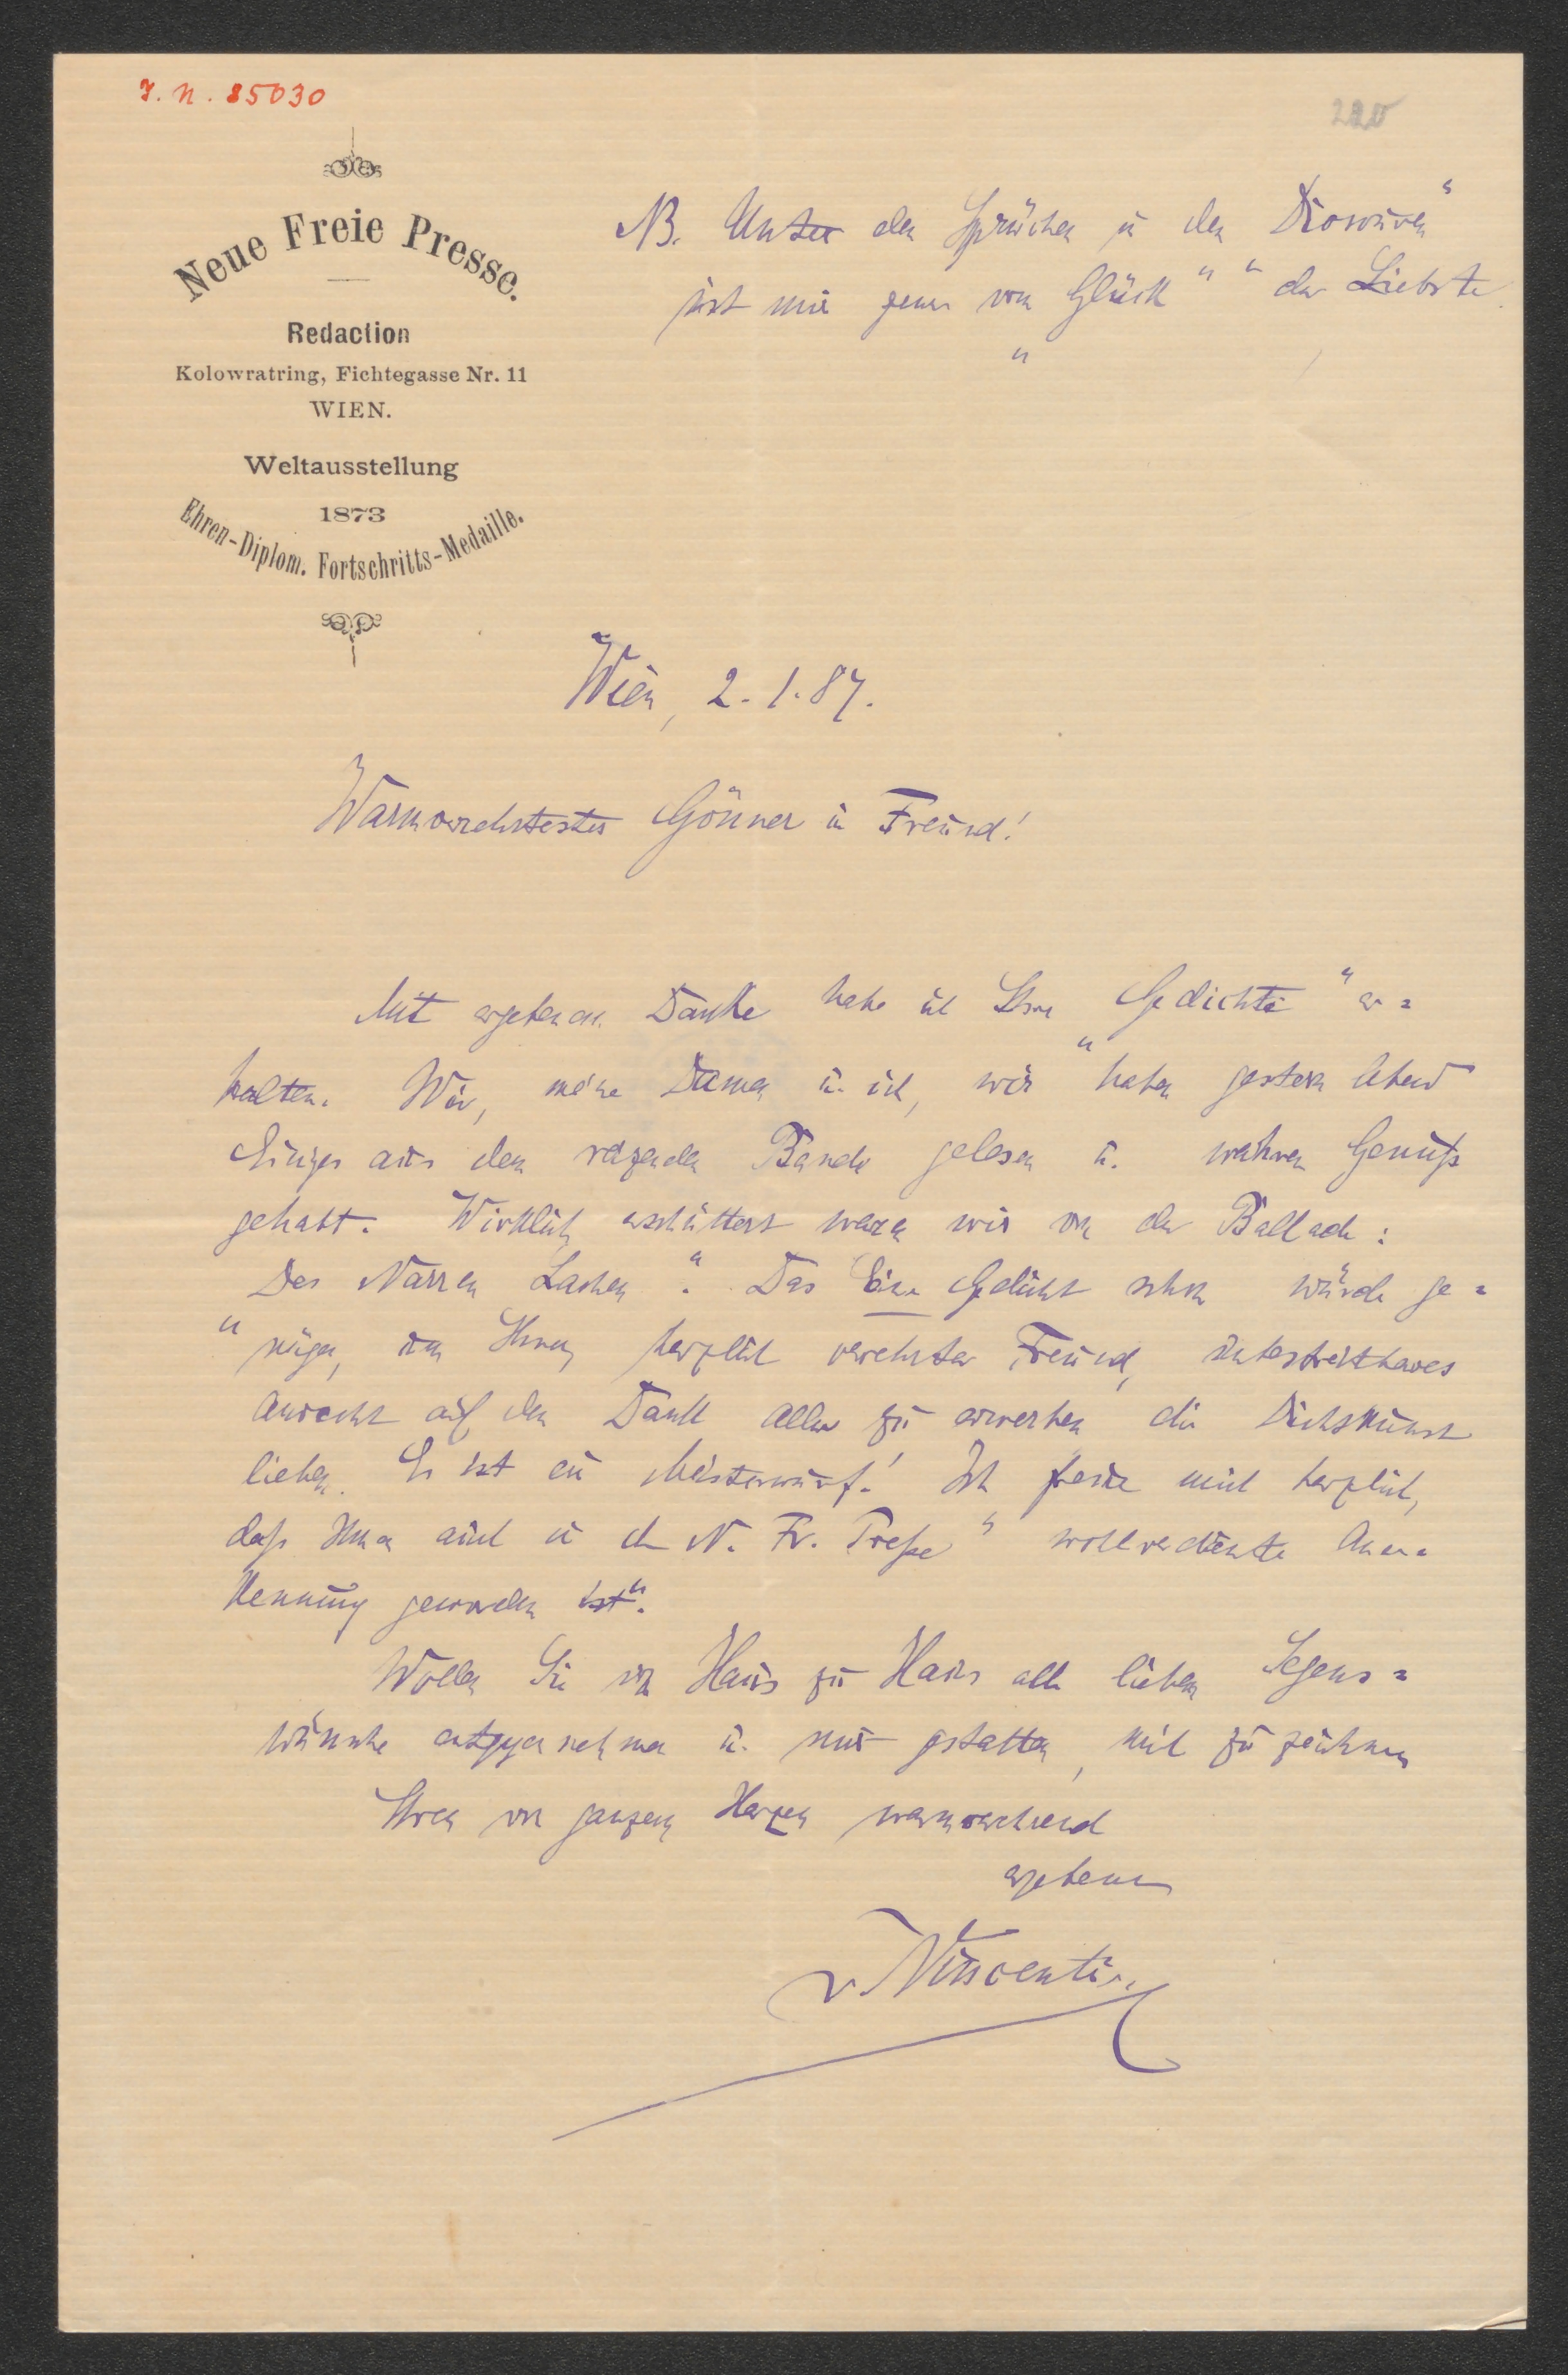 J. N. 85030
220
Neue Freie Presse.
Redaction
Kolowratring, Fichtegasse Nr. 11
WIEN.
Weltausstellung
1873
Ehren-Diplom. Fortschritts-Medaille.
NB. Unter den Sprüchen in den „Dioskuren“
ist mir jener vom „Glück“ der Liebste
Wien, 2. 1. 87.
Warmverehrtester Gönner u Freund!
Mit ergebenem Danke habe ich Ihre „Gedichte“ er=
halten. Wir, meine Damen u. ich, wir haben gestern Abend
Einiges aus dem reizenden Bande gelesen u. wahren Genuß
gehabt. Wirklich erschüttert waren wir von der Ballade:
„Des Narren Lachen“. Das Eine Gedicht schon würde ge=
nügen, um Ihnen, herzlich verehrter Freund, unbestreitbares
Anrecht auf den Dank Aller zu erwerben die Dichtkunst
lieben. Es ist ein Meisterwurf! Ich freue mich herzlich,
daß Ihnen auch in der „N. Fr. Preße“ wohlverdiente Aner=
kennung geworden ist.
Wollen Sie von Haus zu Haus alle lieben Segens=
wünsche entgegennehmen u. mir gestatten, mich zu zeichnen
Ihren von ganzem Herzen warmverehrend
ergebenen
v. Vincenti.